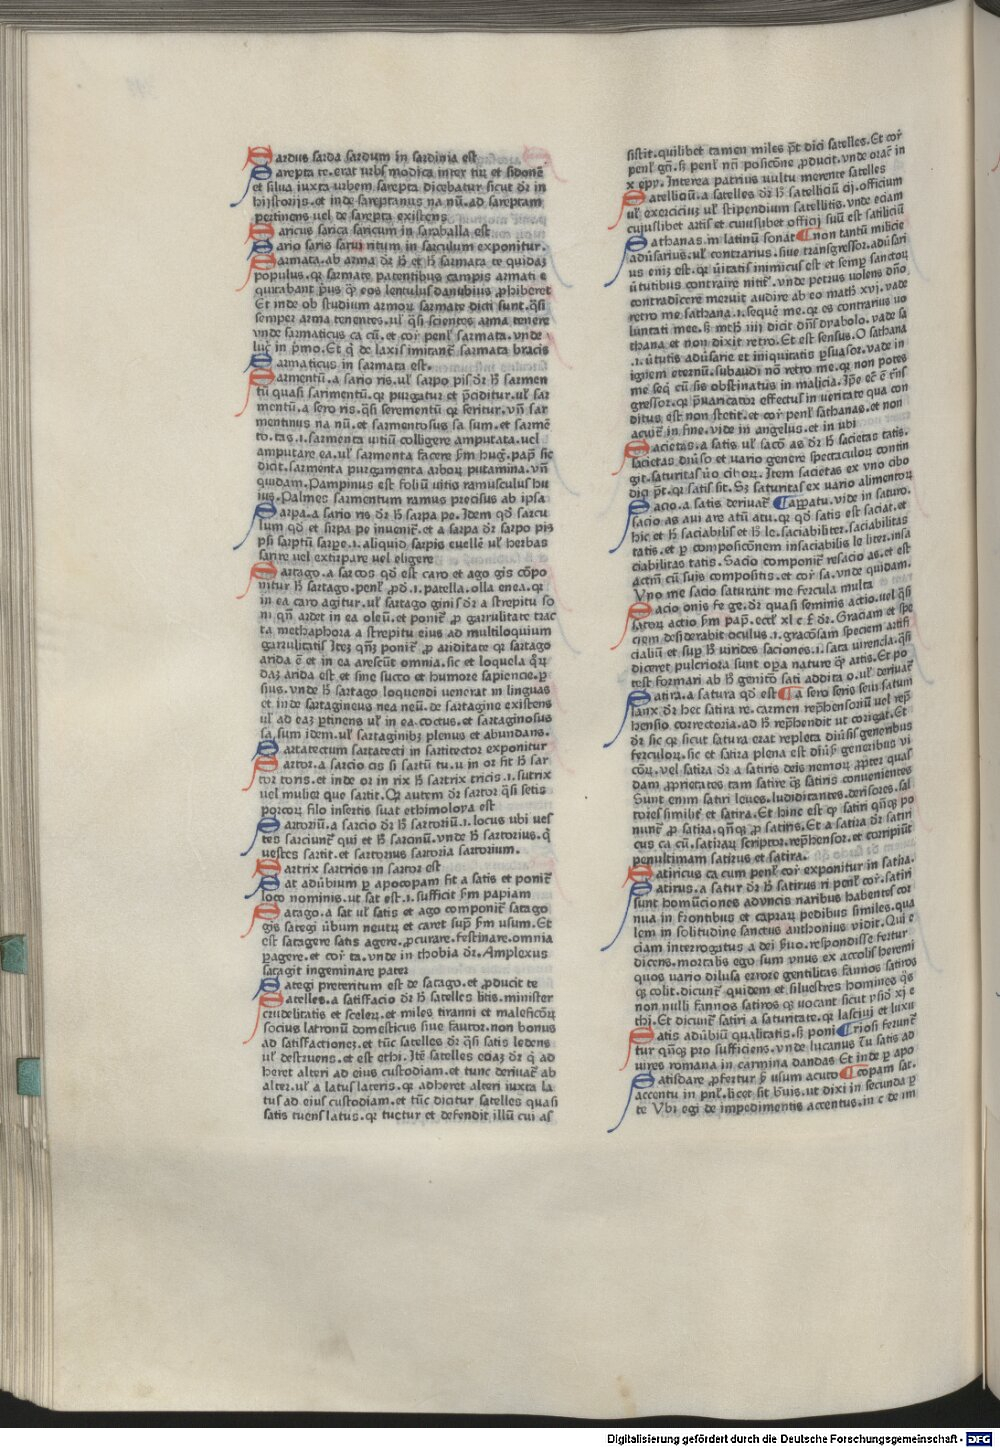 Sardus sarda sardum in sardinia est
Sarepta te. erat urbs modica inter tirū et sidonē
et silua iuxta urbem sarepta dicebatur sicut dr̄ in
hijstorijs. et inde sareptanus na nū. ad sareptam
pertinens uel de sarepta existens
Saricus sarica saricum in saraballa est
Sario saris sarui ritum in sarculum exponitur.
Sarmata. ab arma dr̄ hꝰ et hꝰ sarmata te quidaꝫ
populus. qꝛ sarmate patentibus campis armati e
quitabant pꝰus qꝫ eos lentulus danubius ꝓhiberet
Et inde ob studium armoꝝ sarmate dicti sunt. q̄si
semper arma tenentes. ul̓ q̄si scientes arma tenere
vnde sarmaticus ca cū. et cor̄ penl̓ sarmata. vnde
luc̄ in pͥmo. Et qͥ de laxis imitant̄ sarmata bracis
Sarmaticus in sarmata est.
Sarmentū. a sario ris. ul̓ sarpo pis dr̄ hꝰ sarmen
tū quasi sarimentū. qꝛ purgatur et p̄ciditur. ul̓ sar
mentū. a sero ris. q̄si serementū qꝛ seritur. vn̄ sar
mentinus na nū. et sarmentosus sa sum. et sarmē
to. tas. i. sarmenta uitiū colligere amputata. uel
amputare ea. ul̓ sarmenta facere ſm hug. pap̄ sic
dicit. sarmenta purgamenta arboꝝ putamina. vn̄
quidam. Pampinus est foliū uitis ramusculus hu
ius. Palmes sarmentum ramus precisus ab ipsa
Sarpa. a sario ris dr̄ hꝰ sarpa pe. Idem qd̓ sarcu
lum qd̓ et sirpa pe inuenit̄. et a sarpa dr̄ sarpo pis
psi sarptū sarpe. i. aliquid sarpis euellē ul̓ herbas
sarire uel extirpare uel eligere
Sartago. a sarcos qd̓ est caro et ago gis cōpo
nitur hꝰ sartago. penl̓ ꝓd. i. patella. olla enea. qꝛ
in ea caro agitur. ul̓ sartago ginis dr̄ a strepitu so
ni qn̄ ardet in ea oleū. et ponit̄ ꝓ garrulitate trac
ta methaphora a strepitu eius ad multiloquium
garrulitatis Iteꝫ qn̄ꝫ ponit̄ ꝓ ariditate qꝛ sartago
arida ē et in ea arescūt omnia. sic et loquela qͦrū
daꝫ arida est et sine succo et humore sapiencie. ꝑ
sius. vnde hꝰ sartago loquendi uenerat in linguas
et inde sartagineus nea neū. de sartagine existens
ul̓ ad eaꝫ ꝑtinens ul̓ in ea coctus. et sartaginosus
sa, sum idem. ul̓ sartaginibꝫ plenus et abundans.
Sartatectum sartatecti in sartitector exponitur
Sartor. a sarcio cis si sartū tu. u in or fit hꝰ sar
tor toris. et inde or in rix hꝰ sartrix tricis. i. sutrix
uel mulier que sartit. Qꝛ autem dr̄ sartor q̄si setis
porcoꝝ filo insertis suat ethimoloya est
Sartoriū. a sarcio dr̄ hꝰ sartoriū. i. locus ubi ves
tes sarciunt̄ qui et hꝰ sarcinū. vnde hꝰ sartorius. qͥ
uestes sartit. et sartorius sartoria sartorium.
Sartrix sartricis in sartor est
Sat adūbium ꝑ apocopam fit a satis et ponit̄
loco nominis. ut sat est. i. sufficit ſm papiam
Satago. a sat ul̓ satis et ago componit̄ satago
gis sategi ūbum neutꝝ et caret sup̄ ſm usum. Et
est satagere satis agere. ꝓcurare. festinare. omnia
ꝑagere. et cor̄ ta. vnde in thobia dr̄. Amplexus
satagit ingeminare pater
Sategi preteritum est de satago. et ꝓducit te
Satelles. a satisfacio dr̄ hꝰ satelles litis. minister
crudelitatis et sceleꝝ. et miles tiranni et maleficoꝝ
socius latronū domesticus siue fautor. non bonus
ad satisfactioneꝫ. et tūc satelles dr̄ q̄si satis ledens
ul̓ destruens. et est ethi. Itē satelles eciaꝫ dr̄ qͥ ad
heret alteri ad eius custodiam. et tunc deriuat̄ ab
alter. ul̓ a latus lateris. qꝛ adheret alteri iuxta la
tus ad eius custodiam. et tūc dicitur satelles quasi
satis tuens latus. qꝛ tuetur et defendit illū cui as
sistit. quilibet tamen miles pōt dici satelles. Et cor̄
penl̓ gn̄i. sꝫ penl̓ nn̄ posicōne ꝓducit. vnde orac̄ in
x epy. Interea patrius uultu merente satelles
Satelliciū. a satelles dr̄ hꝰ satelliciū cij. officium
ul̓ exerciciuꝫ ul̓ stipendium satellitis. vnde eciam
cuiuslibet artis et cuiuslibet officij suū est satiliciū
Sathanas. in latinū sonat ¶ non tantū milicie
adūsarius. ul̓ contrarius. siue transgressor. adūsari
us eniꝫ est. qꝛ ūitatis inimicus est et semꝑ sanctoꝝ
ūtutibus contraire nitit̄. vnde petrus uolens dn̄o,
contradicere meruit audire ab eo math̓ xvj. vade
retro me sathana. i. sequē me. qꝛ es contrarius uo
luntati mee. sꝫ mth̓ iiij dicit dn̄s dyabolo. vade sa
thana et non dixit retro. Et est sensus. O sathana
.i. ūtutis adūsarie et iniquitatis ꝑsuasor. vade in
ignem eternū. subaudi nō retro me. qꝛ non potes
me seqͥ cū sis obstinatus in malicia. Ip̄e ec̄ ē tr̄ns
gressor. qꝛ p̄uaricator effectus in ueritate qua con
ditus est non stetit. et cor̄ penl̓ sathanas. et non
acuit̄ in fine. vide in angelus. et in ubi
Sacietas. a satis ul̓ sacō as dr̄ hꝰ sacietas tatis.
sacietas diūso et uario genere spectaculoꝝ contin
git. saturitas ūo ciboꝝ. Item sacietas ex vno cibo
dici pōt. qꝛ satis sit. Sꝫ saturitas ex uario alimentoꝝ
Sacio. a satis deriuat̄ ¶ apꝑatu. vide in saturo.
sacio as aui are atū atu. qꝛ qd̓ satis est saciat. et
hic et hꝰ saciabilis et hꝰ le. saciabiliter. saciabilitas
tatis. et ꝑ composicōnem insaciabilis le liter. insa
ciabilitas tatis. Sacio componit̄ resacio as. et est
actm̄ cū suis compositis. et cor̄ sa. vnde quidam.
Vno me sacio saturant me fercula multa
Sacio onis fe ge. dr̄ quasi seminis actio. uel q̄si
satoꝝ actio ſm pap̄. eccl̓ xl c f dr̄. Graciam et spe
ciem desiderabit oculus. i. gracōsam speciem artifi
cialiū et suꝑ hꝰ virides saciones. i. sata uirencia. q̄si
diceret pulcriora sunt oꝑa nature qꝫ artis. Et po
test formari ab hꝰ genitō sati addita o. ul̓ deriuat̄
Satira. a satura qd̓ est ¶ a sero seris seui satum
lanx dr̄ hec satira re. carmen rep̄hensoriū uel rep̄
hensio correctoria. ad hꝰ rep̄hendit ut corigat. Et
dr̄ sic qꝛ sicut satura erat repleta diūsis generibus
ferculoꝝ. sic et satira plena est diūsꝭ generibus vi
cōꝝ. vel satira dr̄ a satiris deis nemoꝝ ꝓpter quas
dam ꝓprietates tam satire qꝫ satiris conuenientes
Sunt enim satiri leues. ludiditantes. derisores. sal
tores similit̄ et satira. Et hinc est qꝫ satiri qn̄qꝫ po
nunt̄ ꝓ satira. qn̄qꝫ ꝓ satiris. Et a satira dr̄ satiri
cus ca cū. satiraꝝ scriptor. rep̄hensor. et corripiūt
penultimam satirus et satira.
Satiricus ca cum penl̓ cor̄ exponitur in satira.
Satirus. a satur dr̄ hꝰ satirus ri penl̓ cor̄. satiri
sunt homūciones aduncis naribus habentes cor
nua in frontibus et capraꝝ pedibus similes. qua
lem in solitudine sanctus anthonius vidit. Qui e
ciam interrogatus a dei ſuo. respondisse fertur
dicens. mortalis ego sum vnus ex accolis heremi
quos vario dilusa errore gentilitas faunos satiros
qꝫ colit. dicunt̄ quidem et siluestres homines qͦs
non nulli faunos satiros qꝫ uocant sicut ysid̓ xj e
thi. Et dicunt̄ satiri a saturitate. qꝛ lasciui et luxu
Satis adūbiū qualitatis. sꝫ poni ¶ riosi ferunt̄
tur qn̄qꝫ pro sufficiens. vnde lucanus Tu satis ad
uires romana in carmina dandas Et inde ꝑ apo
Satisdare ꝓfertur ſ usum acuto ¶ copam sat.
accentu in pnl̓. licet sit bͥuis. ut dixi in secunda ꝑ
te Vbi egi de impedimentis accentus. in c de im
Digitalisierung gefördert durch die Deutsche Forschungsgemeinschaft - DFG